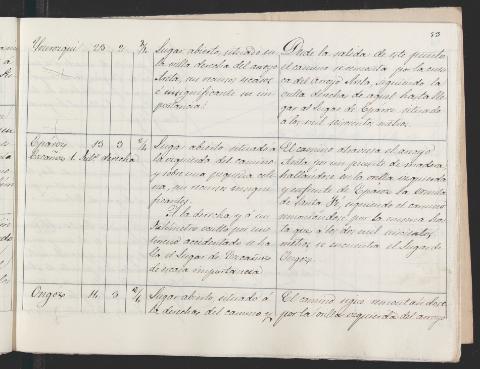 53
Lugar abierto, situado en
la orilla derecha del arroyo
Anta, sus recursos escasos
é insignificante su im-
portancia.
Desde la salida de este punto,
el camino se remonta por la cuen-
ca del arroyo Anta, siguiendo la
orilla derecha de aquel hasta lle-
gar al Lugar de Epároz situado
á los mil seiscientos metros.
Epároz 13 3 2/4
1 Kilo. derecha
Lugar abierto, situado a
la izquierda del camino
y sobre una pequeña coli-
na, sus recursos insigni-
ficantes.
A la derecha y á un
Kilómetro oculto por un
terreno accidentado se ha-
lla el Lugar de
de escasa importancia
El camino atraviesa el arroyo
Anta por un puente de madera,
hallándose en la orilla izquierda
y enfrente de Epároz la ermita
de Santa Fé, siguiendo el camino
remontándose por la misma has-
ta que á los dos mil
metros se encuentra el Lugar de
Ongoz.
Ongoz 14 3
Lugar abierto, situado á
la derecha del camino y
El camino sigue remontándose
por la orilla izquierda del arroyo